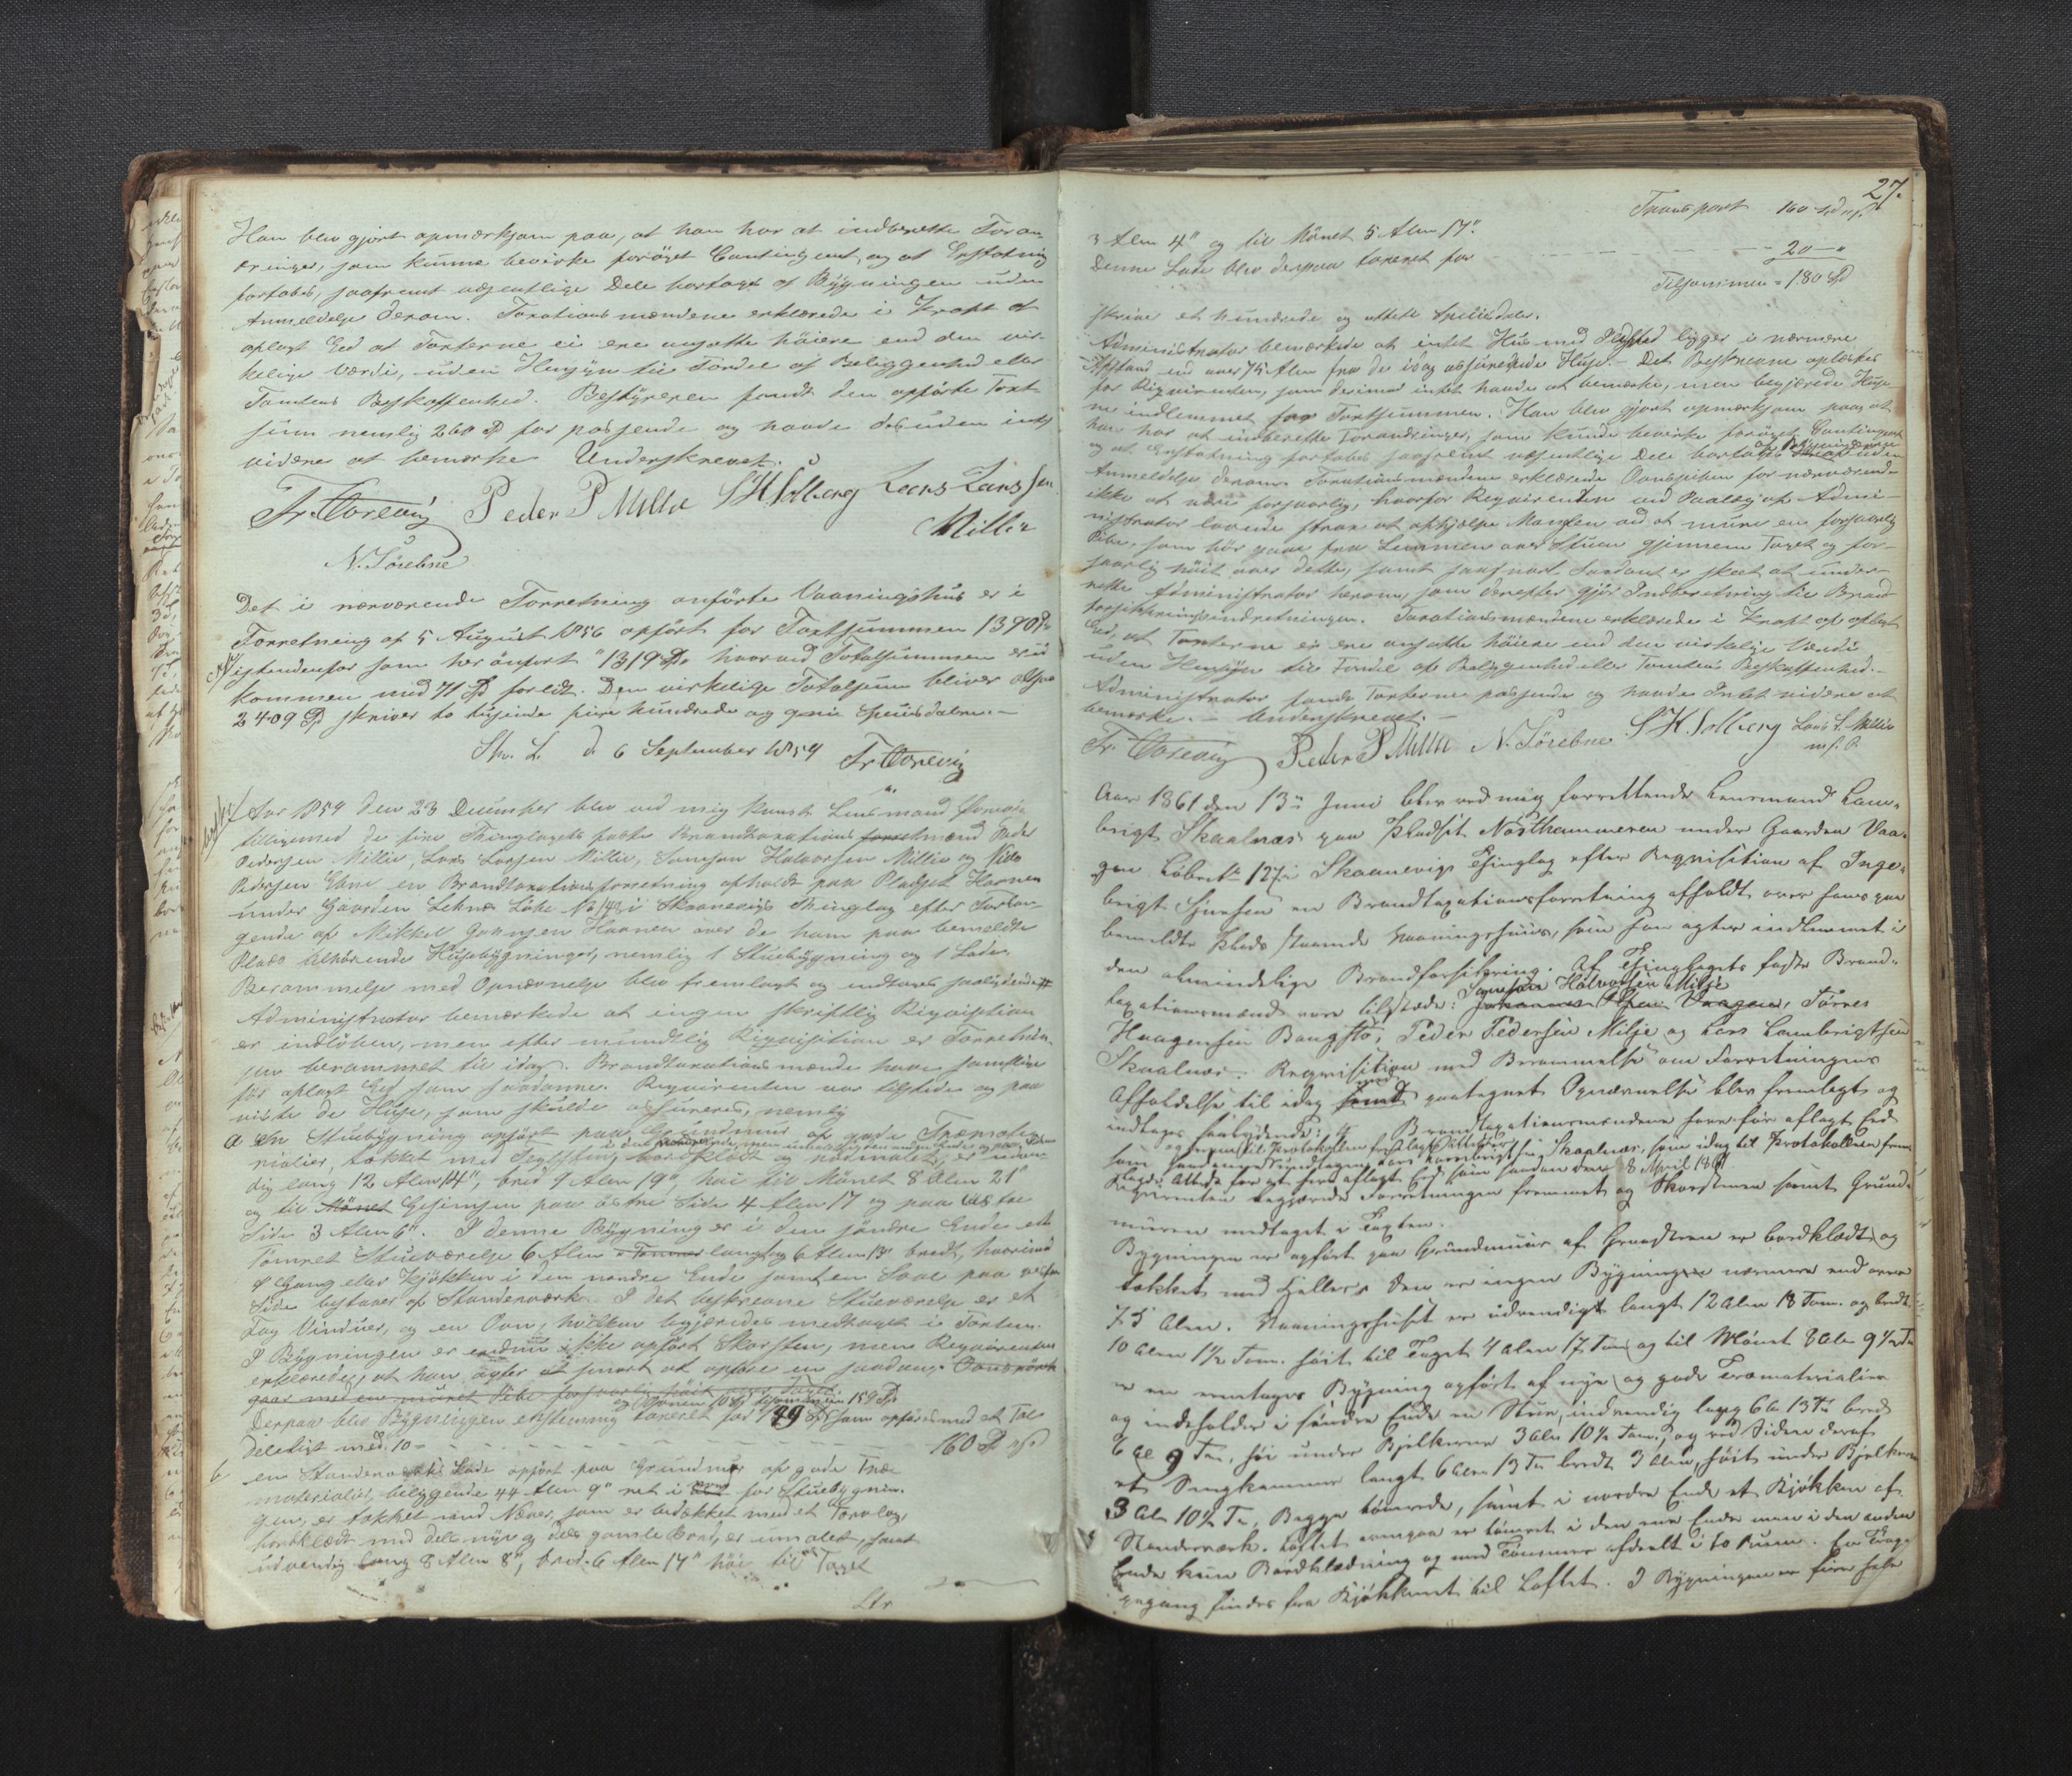 Han blev gjort opmærksom paa, at han har at indberette Foran-
dringer, som kunne bevirke forøget Contingent, og at Erstatning
fortabes, saafremt væsentlige Dele bortages af Bygningen uden
Anmeldelse derom. Taxationsmændene erklærede i Kraft af
aflagt Eed at Taxterne ei ere ansatte høiere end den vir-
kelige Værdi, uden Hensyn til Fordel af Beliggenhed eller
Tomtens Beskaffenhed. Bestyreren fandt den opførte Taxt-
sum nemlig 260 Spd for passende og havde desuden intet
videre at bemærke Underskrevet.
Fr. Toresvig Peder P Millie S H Solberg Lars Larssen
Millie
N. Sørebnæ
Det i nærværende Forretning anførte Vaaningshus er i
Forretning af 5 August 1856 opført for Taxtsummen 1390 Spd
istedenfor som her anført 1319 Spd hvorved Totalsummen er ud
kommen med 71 Spd forlidt. Den virkelige Totalsum bliver altsaa
2409 Spd skriver to tusinde fire hundrede og ni Speciesdaler.
Skv. L. d 6 September 1859 Fr Toresvig
Aar 1859 den 23 December blev ved mig Const. Lensmand
tilligemed de fire Thinglagets faste Brandtaxations mænd Peder
Pedersen Millie, Lars Larsen Millie, Samson Halvorsen Millie og Nils
Pedersen Ebne en Brandtaxationsforretning afholdt paa Pladset Havnen
under Gaarden Leknæs Løbe No 142 i Skaanevigs Thinglag efter Forlan-
gende af Mikkel Johnsen Havnen over de ham paa bemeldte
Plads tilhørende Husebygninger, nemlig 1 Stuebygning og 1 Lade.
Berammelse med Opnævnelse blev fremlagt og indtages saalydende #
Administrator bemærkede at ingen skriftlig Requisition
er indløben, men efter mundtlig Requisition er Forretnin-
gen berammet til idag. Brandtaxationsmænde have samtlige
før aflagt Eed som saadanne. Requirenten var tilstede og paa
viste de Huse, som skulde assureres, nemlig
a En Stuebygning opført paa Grundmur af gode Træmate-
rialier, tækket med Teglsten, bordklædt og
dig lang 12 Alen 14", bred 9 Alen 19", høi til Mønet 8 Alen 21"
og til Mønet Gesimsen paa østre Side 4 Alen 17 og paa vestre
Side 3 Alen 6". I denne Bygning er i den søndre Ende et
tømret Stueværelse 6 Alen langt og 6 Alen 13" bredt, hvorimod
Gang eller Kjøkken i den nordre Ende samt en Sval paa vestre
Side bestaaer af Standerværk. I det beskrevne Stueværelse er et
Fag Vinduer, og en Ovn, hvilken begjæredes medtaget i Taxten.
I Bygningen er endnu ikke opført Skorsten, men Requirenten
erklærede, at han agter at snart at opføre en saadan.
gaar med en muret Pibe forsvarlig høit over Taget
Derpaa blev Bygningen enstemmig taxeret for 149 Spd som opføres med et Tal
deleligt med 10 - - - 160 Spd
b en Standerværks Lade opført paa Grundmur af gode Træ-
materialier, beliggende 44 Alen 9" ret i for Stuebygnin-
gen, er tækket med Næver, som er bedækket med et Torvlag,
bordklædt med dels nye og dels gamle Bord, er umalet, samt
udvendig lang 8 Alen 8", bred 6 Alen 14" høi til Taget
27.
Transport 160 Spd
3 Alen 4" og til Mønet 5 Alen 17".
Denne Lade blev derpaa taxeret for 20 - "
Tilsammen = 180 Spd
skrive et hundrede og otteti Speciesdaler.
Administrator bemærkede at intet Hus med Ildsted ligger i nærmere
Afstand end over 75 Alen fra de idag assurerede Huse. Det Beskrevne oplæstes
for Requirenten, som derimod intet havde at bemærke, men begjærede Huse
ne indlemmet for Taxtsummen. Han blev gjort opmærksom paa at
han har at indberette Forandringer, som kunde bevirke forøget Contingent
og at Erstatning fortabes saafremt væsentlige Dele bortages af Bygningerne uden
Anmeldelse derom. Taxationsmændene erklærede Ovnspiben for nærværende
ikke at være forsvarlig, hvorfor Requirenten ved Paalæg af Admi-
nistrator lovede strax at afhjælpe Manglen ved at mure en forsvarlig
Pibe, som bør gaae fra Lemmen over Stuen gjennem Taget og for-
svarlig høit over dette, samt saasnart Saadant er skeet at under-
rette Administrator herom, som derefter gjør Indberetning til Brand
forsikkringsindretningen. Taxationsmændene erklærede i Kraft af aflagt
Eed, at Taxterne ei ere ansatte høiere end den virkelige Værdi
uden Hensyn til Fordel af Beliggenhed eller Tomtens Beskaffenhed.
Administrator fandt Taxterne passende og havde Intet videre at
bemærke. - Underskrevet. -
Fr. Toresvig Peder P Millie N. Sørebnæ S H. Solberg Lars L. Millie
m. f. P.
Aar 1861 den 13de Juni blev ved mig forrettende Lensmand Lam-
brigt Skaalnæs paa Pladset Nøsthammeren under Gaarden Vaa-
gen Løbe No 127 i Skaanevigs Thinglag efter Requisition af Inge-
brigt Sjursen en Brandtaxationsforretning afholdt over hans paa
bemeldte Plads staaende Vaaningshuus, som han agter indlemmet i
den almindelige Brandforsikring. Af Thinglagets faste Brand-
taxationsmænd vare tilstæde: Samson Halvorsen Milje, Tørres
Haagensen Baugstø, Peder Pedersen Milje og Lars Lambrigtsen
Skaalnæs. Requisition med Berammelse om Forretningens
Afholdelse til idag med paategnet Opnævnelse blev fremlagt og
indtages saalydende: # Brandtaxationsmændene have før aflagt Eed
som saadanne undtagen Lars Lambrigtsen Skaalnæs, som idag til Protokollen frem
lagde Attest for at have aflagt Eed som saadan den 8 April 1861
Requirenten begjærede Forretningen fremmet og Skorstenen samt Grund-
muren medtaget i Taxten.
Bygningen er opført paa Grundmuur af Graasteen er bordklædt og
tækket med Heller, Der er ingen Bygning nærmere end over
75 Alen. Vaaningshuset er udvendigt langt 12 Alen 18 Tom. og bredt
10 Alen 1½ Tom. høit til Taget 4 Alen 17 Tom og til Mønet 8 Alen 9½ To
er en eenetages Bygning opført af nye og gode Træmaterialier
og indeholder i søndre Ende en Stue, indvendig lang 6 Al 13 To bred
6 Al 9 Tom, høi under Bjelkerne 3 Alen 10½ Tom, og ved Siden deraf
et Sengkammer langt 6 Alen 13 To bredt 3 Alen, høit under Bjelkerne
3 Al 10½ To, Begge tømrede, samt i nordre Ende et Kjøkken af
Stenderværk. Loftet ovenpaa er tømret i den ene Ende men i den anden
Ende kun Bordklædning og med Tømmer afdeelt i to Rum. En Trap-
pegang findes fra Kjøkkenet til Loftet. I Bygningen er fire hele